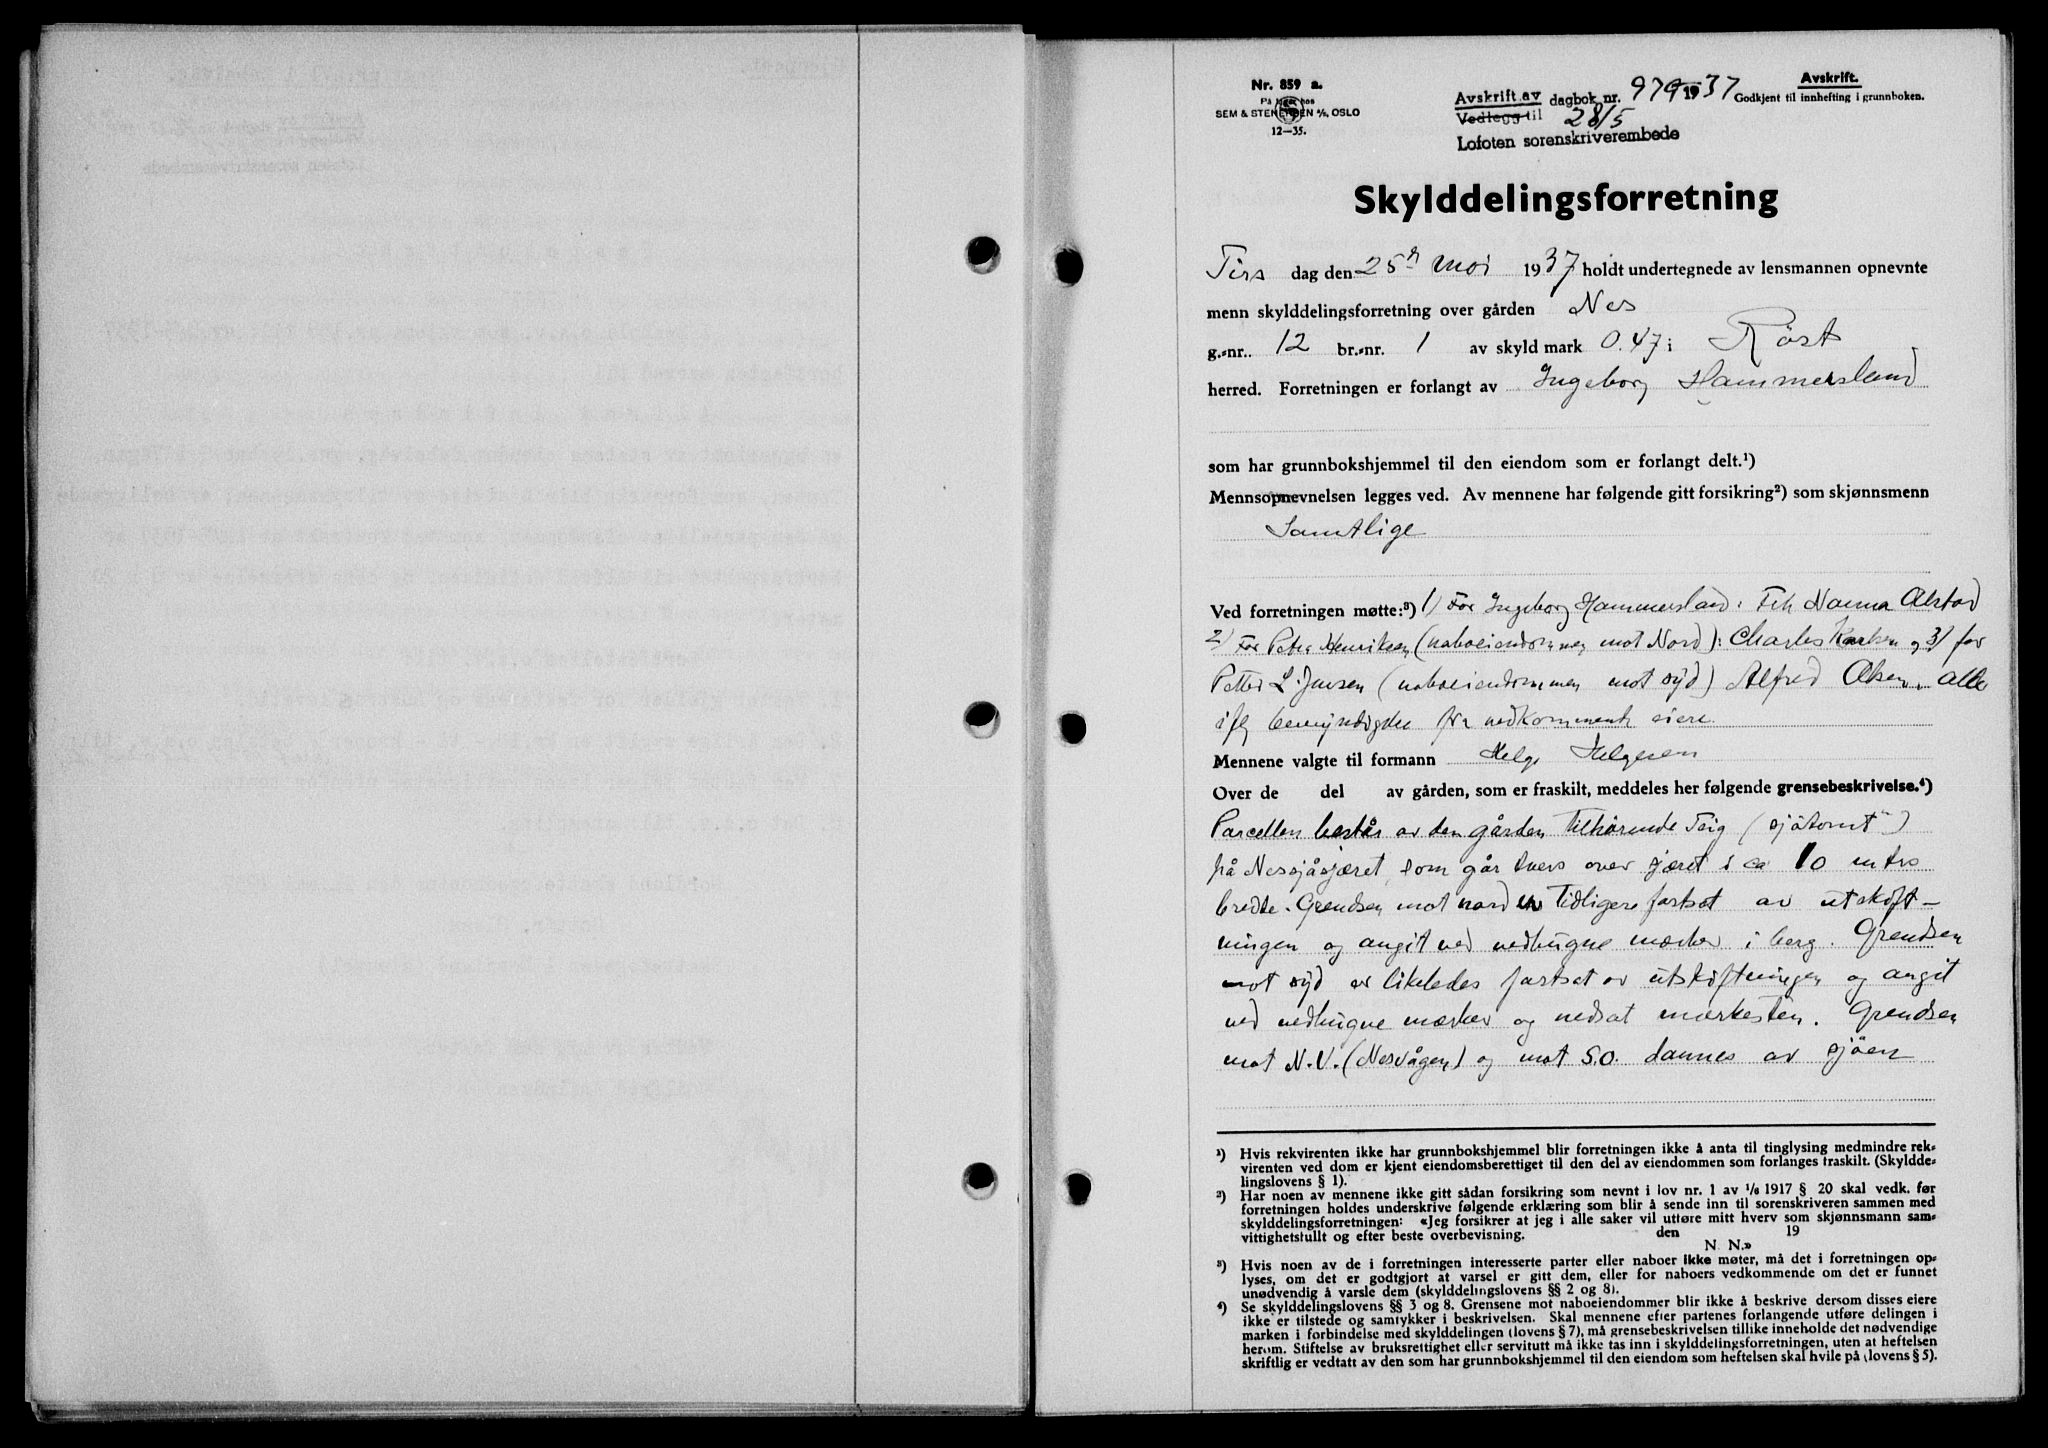 Nr. 859 a.
På lager hos
SEM & STENERSEN A/S, OSLO
12—35.
Avskrift av dagbok nr. 979 1937
Vedlegg til 28/5
Lofoten sorenskriverembede
Avskrift.
Godkjent til innhefting i grunnboken.
Skylddelingsforretning
Tirs dag den 25de mai 1937 holdt undertegnede av lensmannen opnevnte
menn skylddelingsforretning over gården Nes
g.-nr. 12 br.-nr. 1 av skyld mark 0.47 i Röst
herred. Forretningen er forlangt av Ingeborg Hammersland
som har grunnbokshjemmel til den eiendom som er forlangt delt.¹)
Mennsopnevnelsen legges ved. Av mennene har følgende gitt forsikring²) som skjønnsmenn
Samtlige
Ved forretningen møtte:³) 1) For Ingeborg Hammersland: Frk Nanna Alstad
2) For Petra Henriksen (naboeiendommen mot Nord): Charles Karlsen og 3) for
Petter L. Jensen (naboeiendommen mot syd) Alfred Olsen. alle
ifg bemyndigelse fra vedkommende eiere.
Mennene valgte til formann Helge Helgesen
Over de del av gården, som er fraskilt, meddeles her følgende grensebeskrivelse.⁴)
Parcellen består av den gården tilhørende Teig (sjøtomt")
på Nessjåsjæret, som går tvers over sjæret i ca 10 mtrs
bredde. Grendsen mot nord er tidligere fastsat av utskift-
ningen og angit ved nedhugne mærker i berg. Grendsen
mot syd er likeledes fastsat av utskiftningen og angit
ved nedhugne mærker og nedsat merkesten. Grendsen
mot N.V. (Nesvågen) og mot S.O. dannes av sjøen
¹) Hvis rekvirenten ikke har grunnbokshjemmel blir forretningen ikke å anta til tinglysing medmindre rek-
virenten ved dom er kjent eiendomsberettiget til den del av eiendommen som forlanges fraskilt. (Skyldde-
lingslovens § 1).
²) Har noen av mennene ikke gitt sådan forsikring som nevnt i lov nr. 1 av 1/6 1917 § 20 skal vedk. før
forretningen holdes underskrive følgende erklæring som blir å sende inn til sorenskriveren sammen med
skylddelingsforretningen: «Jeg forsikrer at jeg i alle saker vil utføre mitt hverv som skjønnsmann sam-
vittighetsfullt og efter beste overbevisning. den 19
N. N.»
³) Hvis noen av de i forretningen interesserte parter eller naboer ikke møter, må det i forretningen op-
lyses, om det er godtgjort at varsel er gitt dem, eller for naboers vedkommende om det er funnet
unødvendig å varsle dem (skylddelingslovens §§ 2 og 8).
⁴) Se skylddelingslovens §§ 3 og 8. Grensene mot naboeiendommer blir ikke å beskrive dersom disses eiere
ikke er tilstede og samtykker i beskrivelsen. Skal mennene efter partenes forlangende utføre delingen i
marken i forbindelse med skylddelingen (lovens § 7), må grensebeskrivelsen tillike inneholde det nødvendige
herom. Stiftelse av bruksrettighet eller servitutt må ikke tas inn i skylddelingsforretningen, uten at heftelsen
skriftlig er vedtatt av den som har grunnbokshjemmel til den eiendom som heftelsen skal hvile på (lovens § 5).